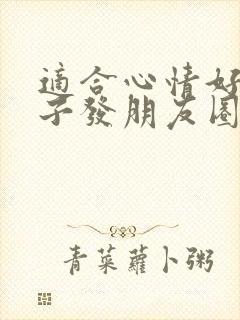 適合心情好
子發朋友圈
青菜蘿卜粥